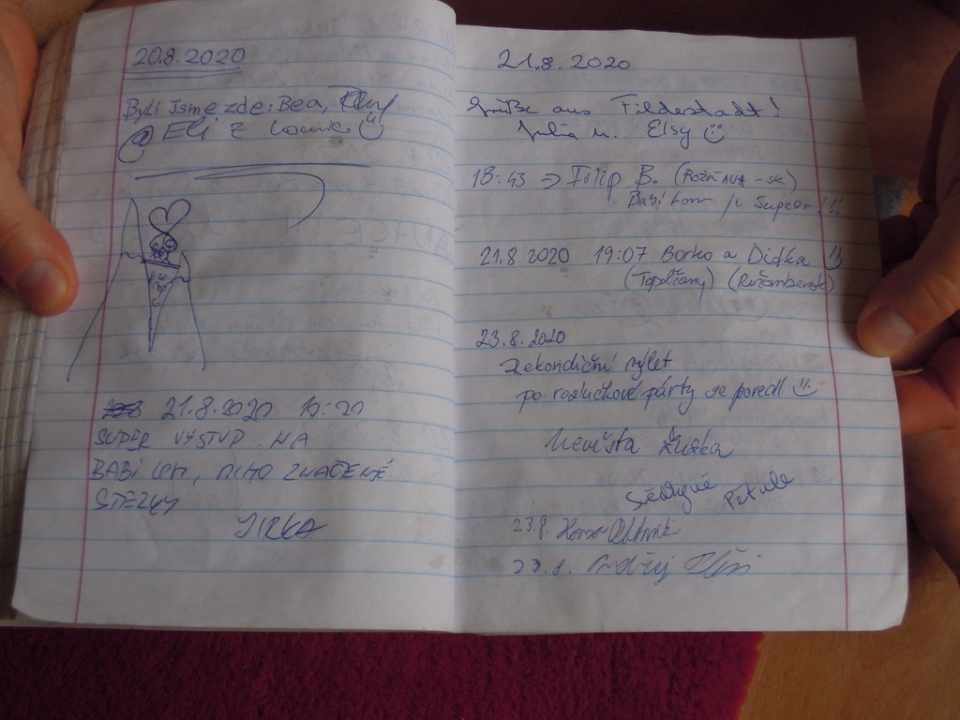 20.8.2020
Byli jsme zde: Bea,
@ Eli z
21.8.2020 10:20
SUPER VÝSTUP NA
BABÍ LOM, MIMO ZNAČENÉ
STEZKY
JIRKA
21.8.2020
Grüße aus Filderstadt!
Julia u. Elsy
18:43 => Filip B. (Rožňava - SK)
Babí Lom je super!!!
21.8.2020 19:07 Borko a Didka
(Topoľčany) (Ružomberok)
23.8.2020
Rekondiční výlet
po rozlučkové párty se povedl
Nevěsta Zuzka
Svědkyně
23.8.
23.8. Ondřej